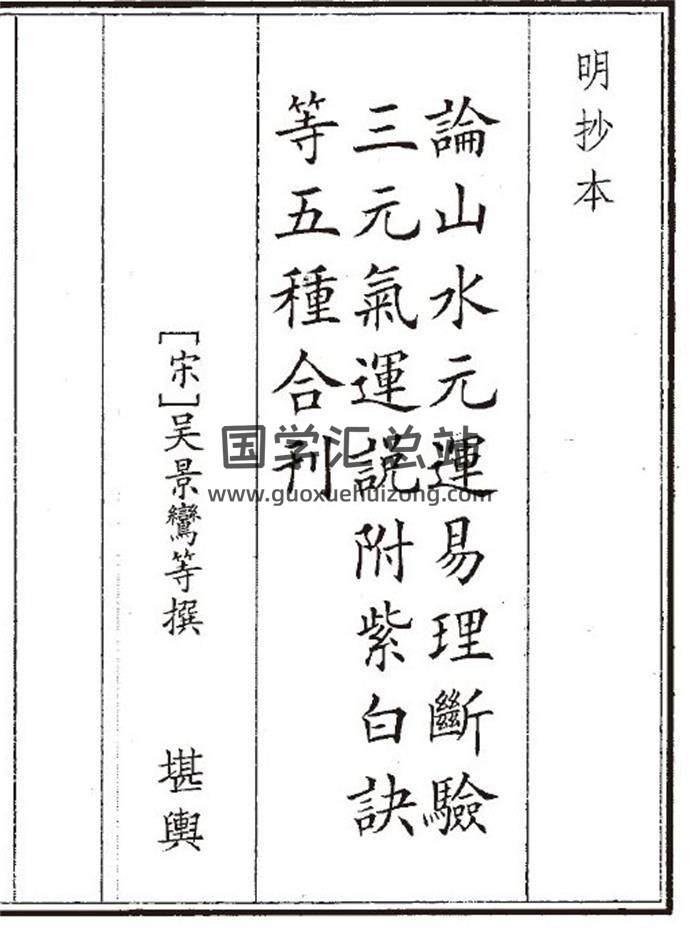 明抄本
論山水元運易理斷驗
三元氣運説附紫白訣
等五種合刊
[宋]吴景鸞等撰
堪輿
国学汇总站
www.guoxuehuizong.com